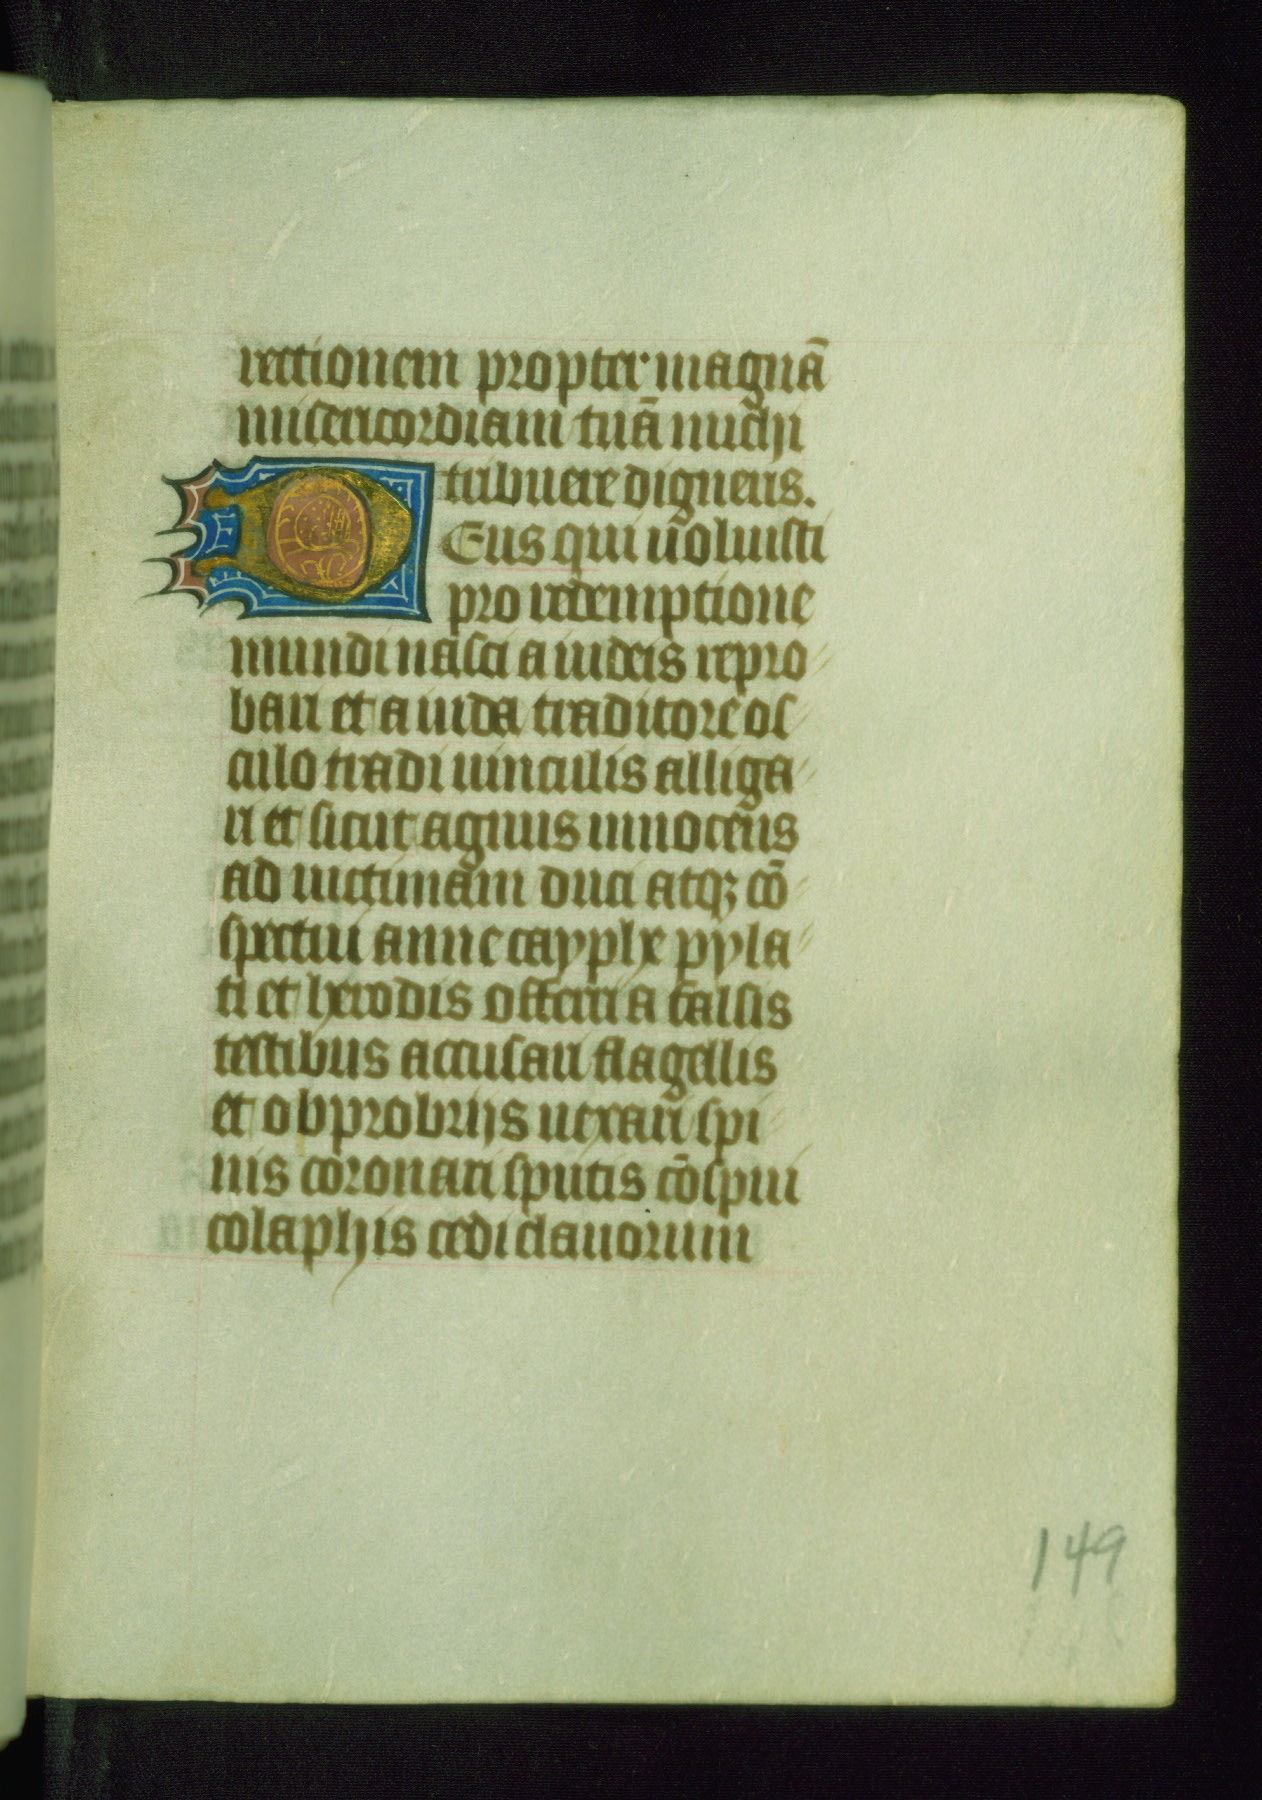 rectionem propter magnā
misericordiam tuā michi
tribuere digneris.
Deus qui uoluisti
pro redemptione
mundi nasci a iudeis repro
bari et a iuda traditore os
culo tradi uinculis alliga
ri et sicut agnus innocens
ad uictimam duci atqꝫ cō
spectui anne cayphe pyla
ti et herodis offerri a falsis
testibus accusari flagellis
et obprobrijs uexari spi
nis coronari sputis cōspui
colaphis cedi clauorum
149